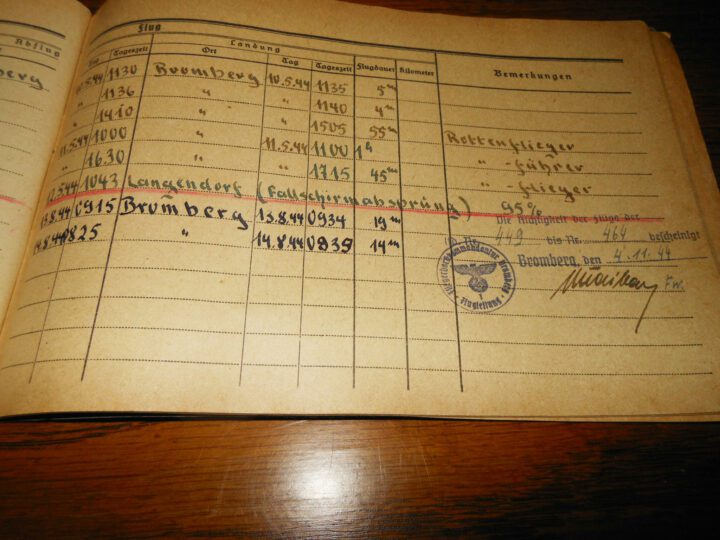 Flug
Abflug Landung
Tag Tageszeit Ort Tag Tageszeit Flugdauer Kilometer Bemerkungen
10.5.44 1130 Bromberg 10.5.44 1135 5 m
" 1136 " " 1140 4 m
" 1410 " " 1505 55 m
11.5.44 1000 " 11.5.44 1100 1 h Rottenflieger
" 1630 " " 1715 45 m " -führer
12.5.44 1043 Langendorf (Fallschirmabsprung) " -flieger
95%
13.8.44 0915 Bromberg 13.8.44 0934 19 m
14.8.44 0825 " 14.8.44 0839 14 m
Die Richtigkeit der Flüge der
449 bis Nr. 464 bescheinigt
Bromberg, den 4.11.44
Fw.
Flugleitung